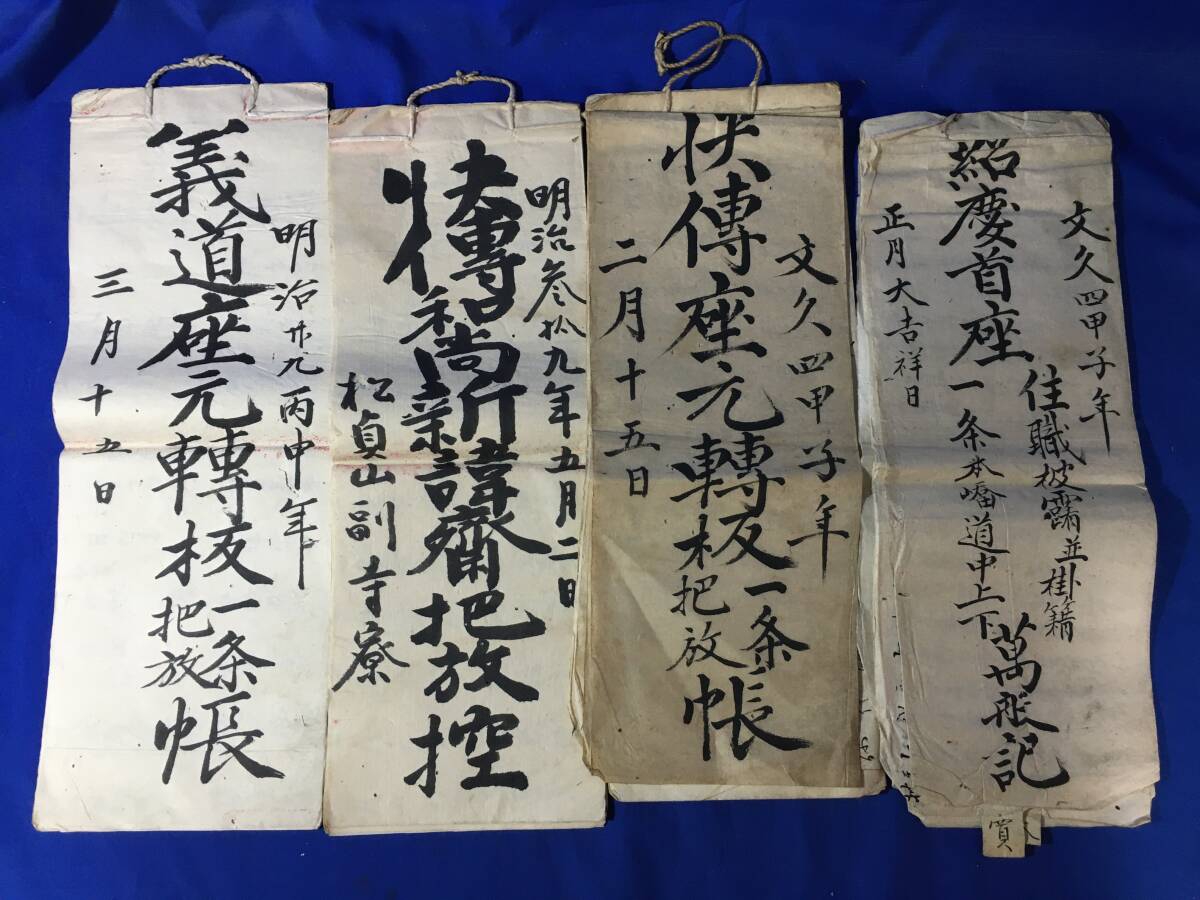 文久四甲子年
住職披露並掛籍
紹慶首座一条本嶓道中上下萬般記
正月大吉祥日
文久四甲子年
快傳座元轉板一条把放帳
二月十五日
明治参拾九年五月二日
快傳和尚新諱齋把放控
松貞山副寺寮
明治廿九丙申年
義道座元轉板一条把放帳
三月十五日